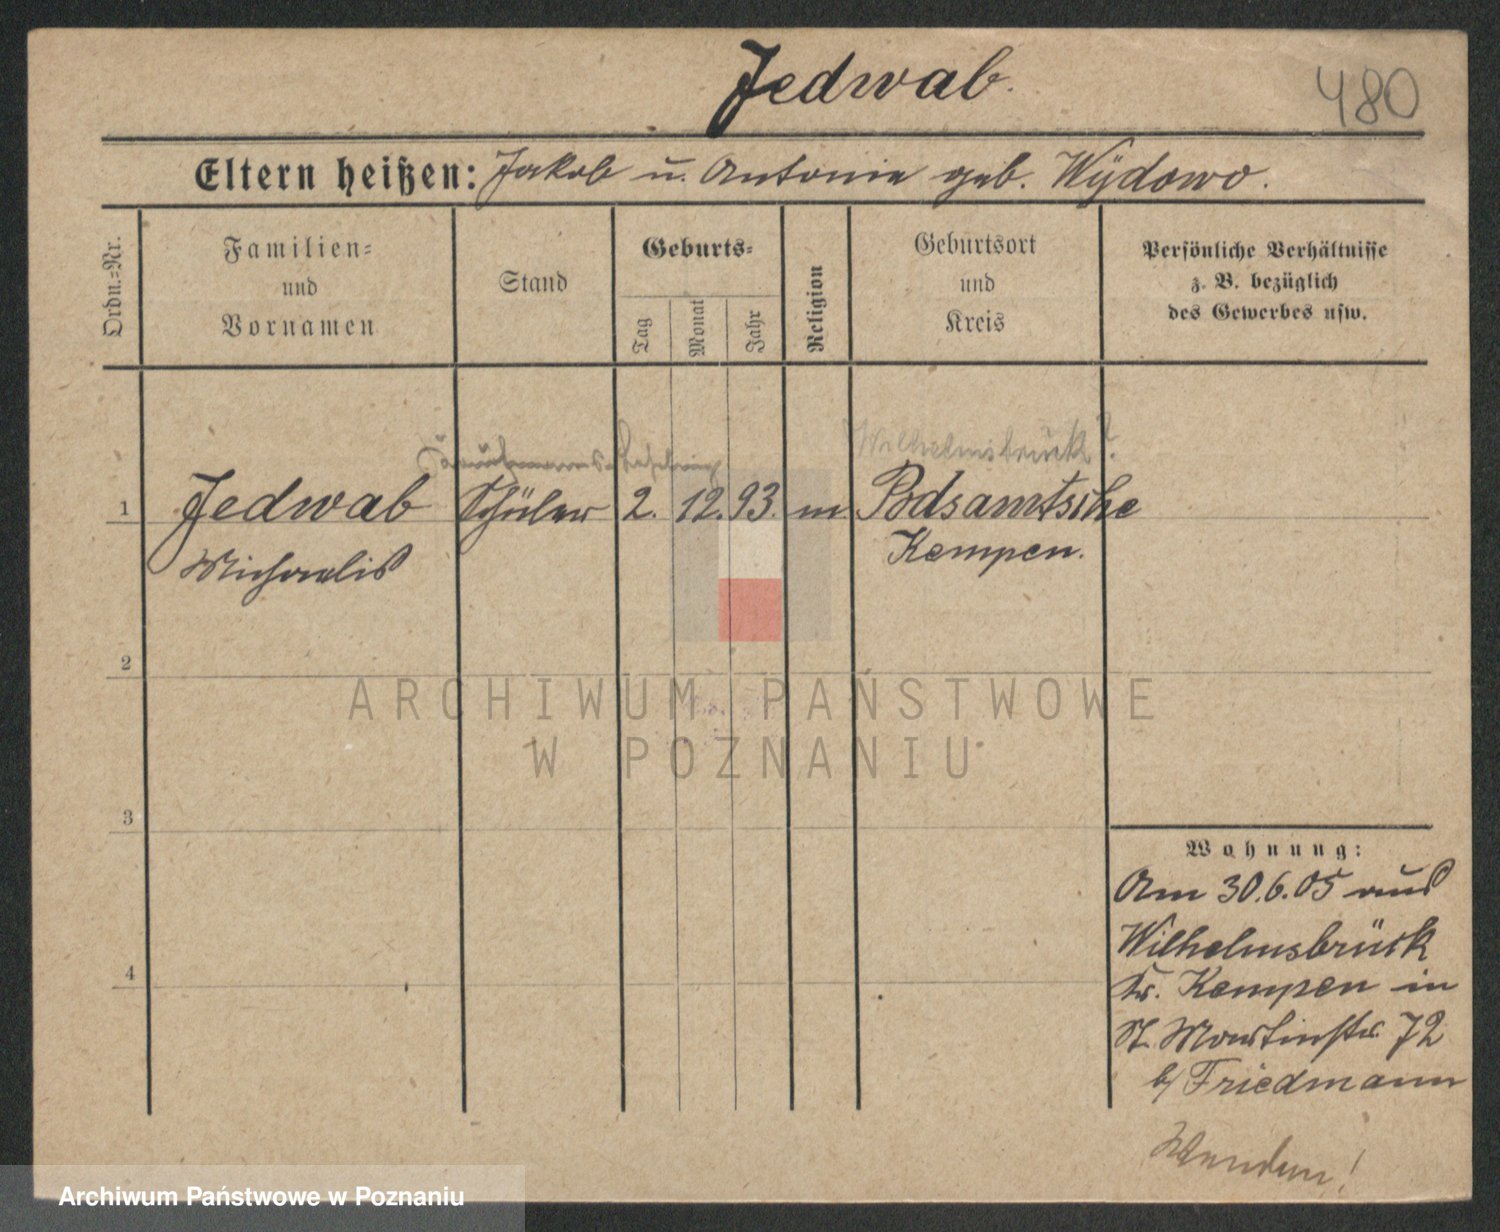 Jedwab.
480
Eltern heißen: Jakob u. Antonie geb. Wÿdowo.
Ordn.=Nr.
Familien=
und
Vornamen
Stand
Geburts=
Tag
Monat
Jahr
Religion
Geburtsort
und
Kreis
Persönliche Verhältnisse
z. B. bezüglich
des Gewerbes usw.
Kaufmanns-Lehrling
Wilhelmsbrück?
1 Jedwab Schüler 2. 12. 93. m
Kempen.
Michaelis
2
ARCHIWUM PAŃSTWOWE
W POZNANIU
3
Wohnung:
Am 30.6.05 aus
Wilhelmsbrück
4
Kr. Kempen in
St. Martinstr. 72
b/ Friedmann
Wenden!
Archiwum Państwowe w Poznaniu